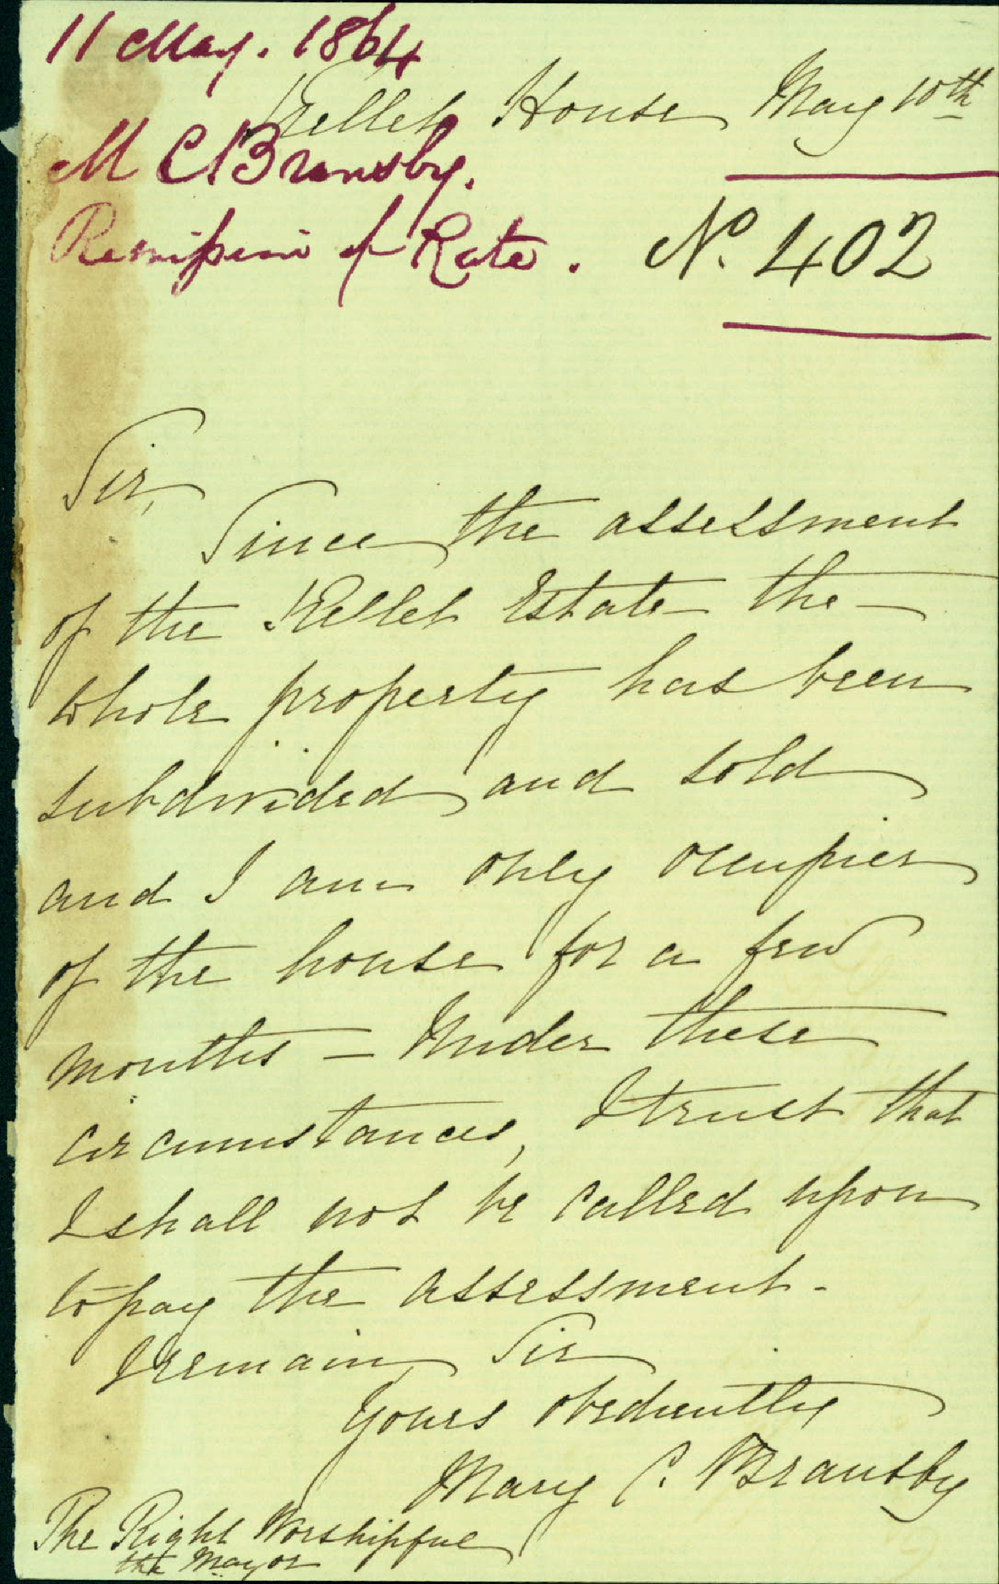 11 May. 1864
Kellet House May 10th
M C Bransby.
Remission of Rate. No. 402
Sir,
Since the assessment
of the Kellet Estate the
whole property has been
subdivided and sold
and I am only occupier
of the house for a few
months — Under these
circumstances, I trust that
I shall not be called upon
to pay the assessment.
I remain, Sir
Yours obediently
Mary C. Bransby
The Right Worshipful
the Mayor